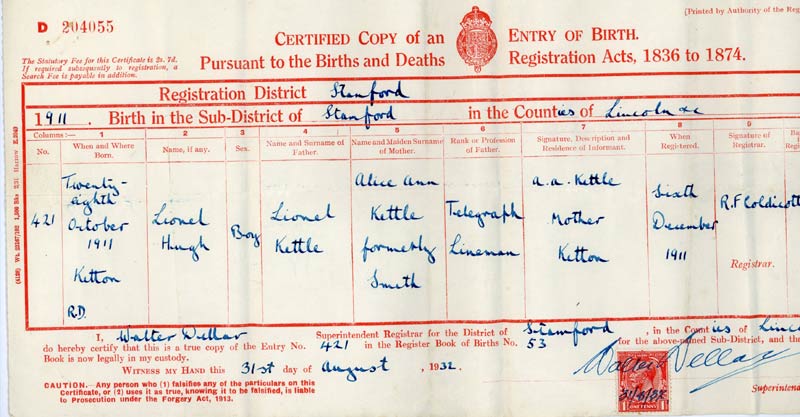 [Printed by Authority of the Reg
D 204055
CERTIFIED COPY of an ENTRY OF BIRTH.
The Statutory Fee for this Certificate is 2s. 7d.
If required subsequently to registration, a
Search Fee is payable in addition.
Pursuant to the Births and Deaths Registration Acts, 1836 to 1874.
Registration District Stamford
1911. Birth in the Sub-District of Stamford in the Counties of Lincoln &c
Columns:— 1 2 3 4 5 6 7 8 9
No. When and Where Born. Name, if any. Sex. Name and Surname of Father. Name and Maiden Surname of Mother. Rank or Profession of Father. Signature, Description and Residence of Informant. When Registered. Signature of Registrar. Ba
421
Twenty-
eighth
October
1911
Ketton
R.D.
Lionel
Hugh
Boy
Lionel
Kettle
Alice Ann
Kettle
formerly
Smith
Telegraph
Lineman
A. A. Kettle
Mother
Ketton
Sixth
December
1911
R.F Coldicott
Registrar.
I, Walter Dellar Superintendent Registrar for the District of Stamford, in the Counties of Linco
do hereby certify that this is a true copy of the Entry No. 421 in the Register Book of Births No. 53 for the above-named Sub-District, and the
Book is now legally in my custody.
WITNESS MY HAND this 31st day of August, 1932.
Walter Dellar
CAUTION.—Any person who (1) falsifies any of the particulars on this
Certificate, or (2) uses it as true, knowing it to be falsified, is liable
to Prosecution under the Forgery Act, 1913.
31/8/32
ONE PENNY
Superintende